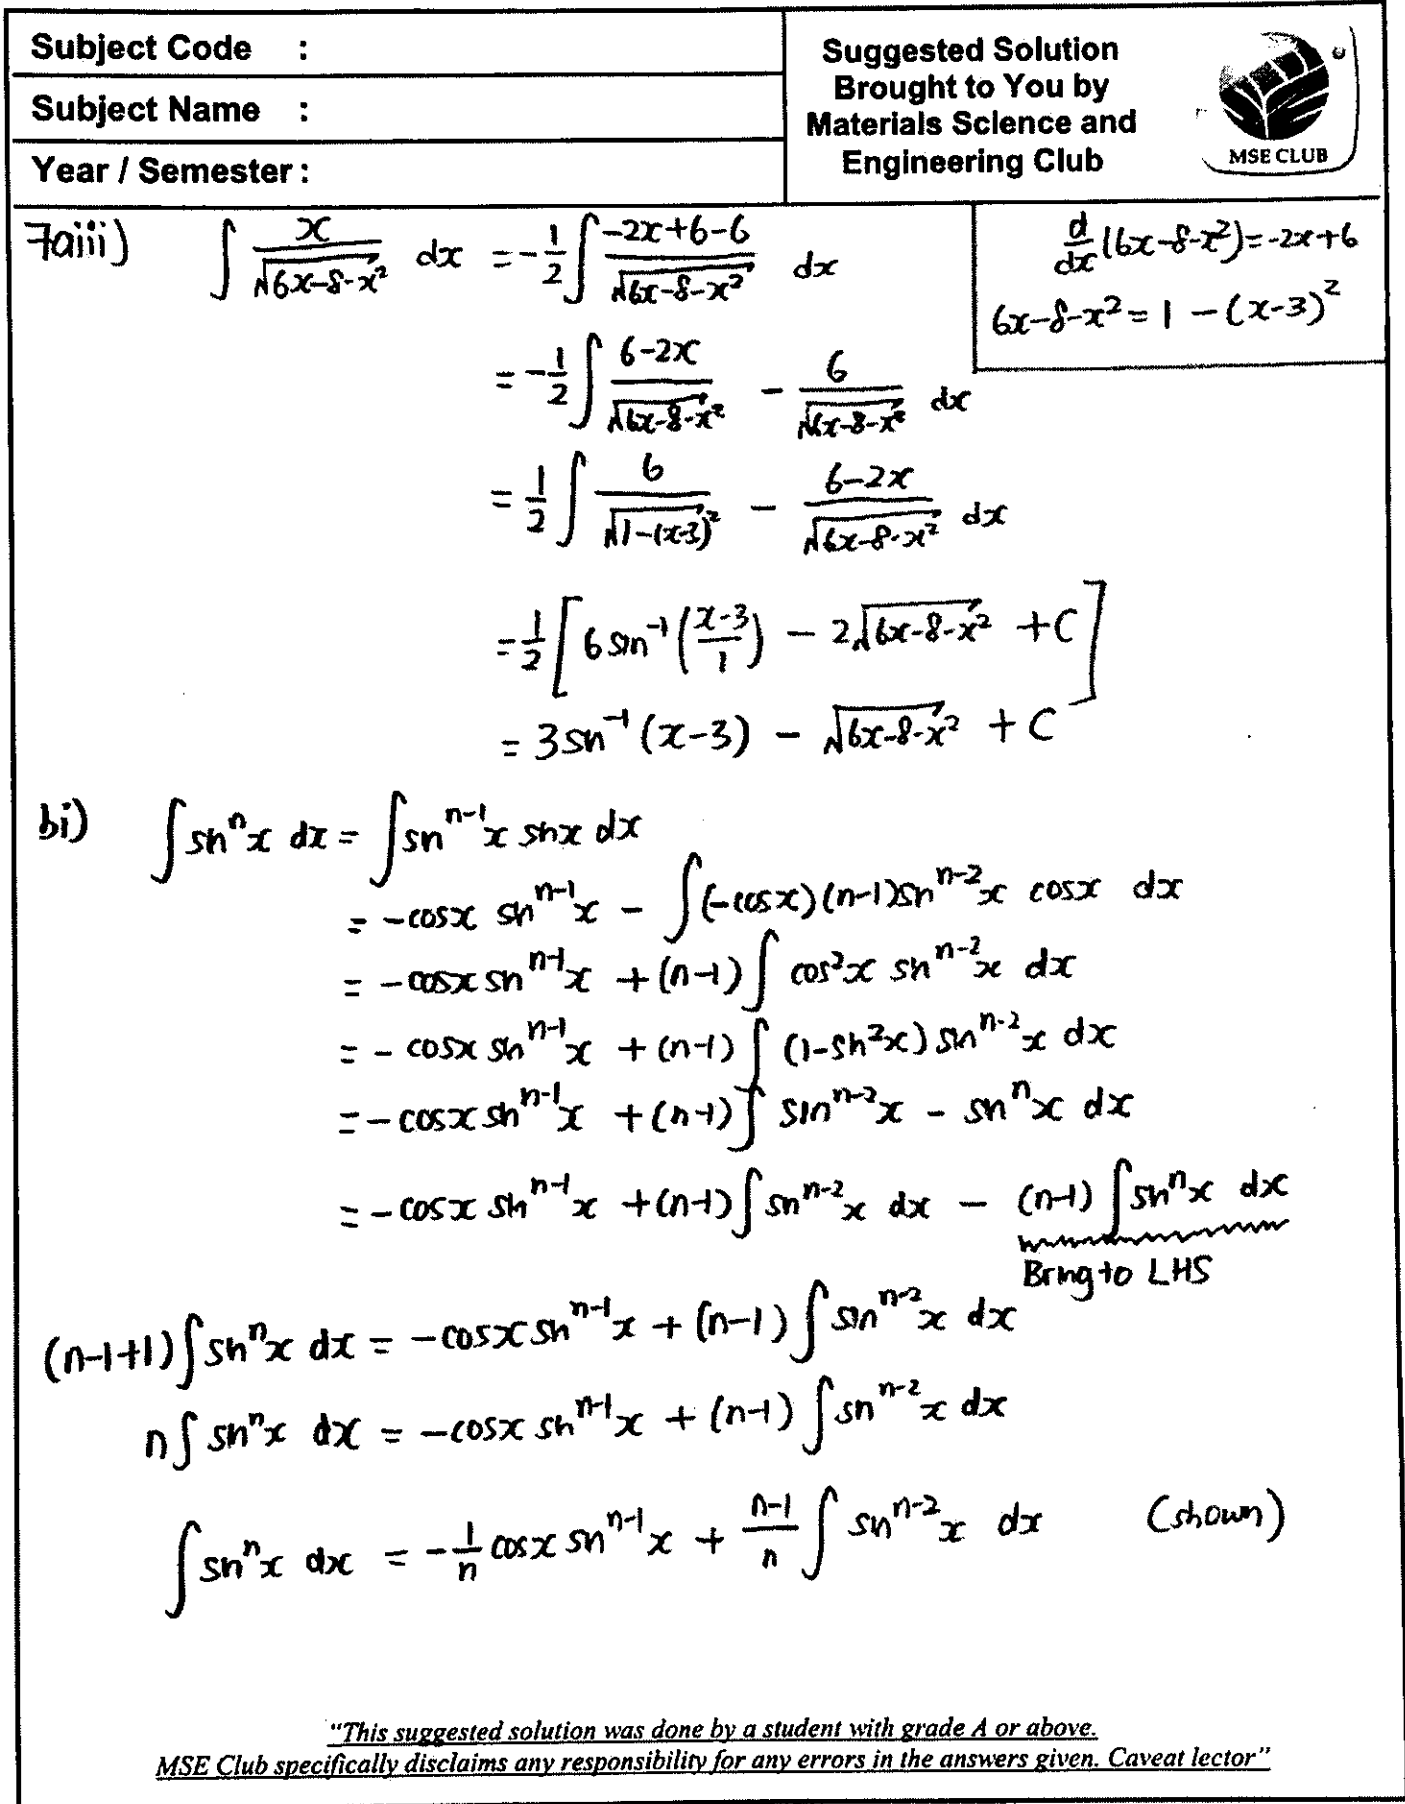 Subject Code :
Subject Name :
Year / Semester :
Suggested Solution
Brought to You by
Materials Science and
Engineering Club
MSE CLUB
7aiii) ∫ x/√(6x-8-x²) dx = -1/2 ∫ (-2x+6-6)/√(6x-8-x²) dx
d/dx (6x-8-x²) = -2x+6
6x-8-x² = 1 - (x-3)²
= -1/2 ∫ (6-2x)/√(6x-8-x²) - 6/√(6x-8-x²) dx
= 1/2 ∫ 6/√(1-(x-3)²) - (6-2x)/√(6x-8-x²) dx
= 1/2 [6 sin⁻¹((x-3)/1) - 2√(6x-8-x²) + C]
= 3 sin⁻¹(x-3) - √(6x-8-x²) + C
bi) ∫ sinⁿx dx = ∫ sinⁿ⁻¹x sinx dx
= -cosx sinⁿ⁻¹x - ∫ (-cosx)(n-1)sinⁿ⁻²x cosx dx
= -cosx sinⁿ⁻¹x + (n-1) ∫ cos²x sinⁿ⁻²x dx
= -cosx sinⁿ⁻¹x + (n-1) ∫ (1-sin²x) sinⁿ⁻²x dx
= -cosx sinⁿ⁻¹x + (n-1) ∫ sinⁿ⁻²x - sinⁿx dx
= -cosx sinⁿ⁻¹x + (n-1) ∫ sinⁿ⁻²x dx - (n-1) ∫ sinⁿx dx
Bring to LHS
(n-1+1) ∫ sinⁿx dx = -cosx sinⁿ⁻¹x + (n-1) ∫ sinⁿ⁻²x dx
n ∫ sinⁿx dx = -cosx sinⁿ⁻¹x + (n-1) ∫ sinⁿ⁻²x dx
∫ sinⁿx dx = -1/n cosx sinⁿ⁻¹x + (n-1)/n ∫ sinⁿ⁻²x dx (shown)
"This suggested solution was done by a student with grade A or above.
MSE Club specifically disclaims any responsibility for any errors in the answers given. Caveat lector"